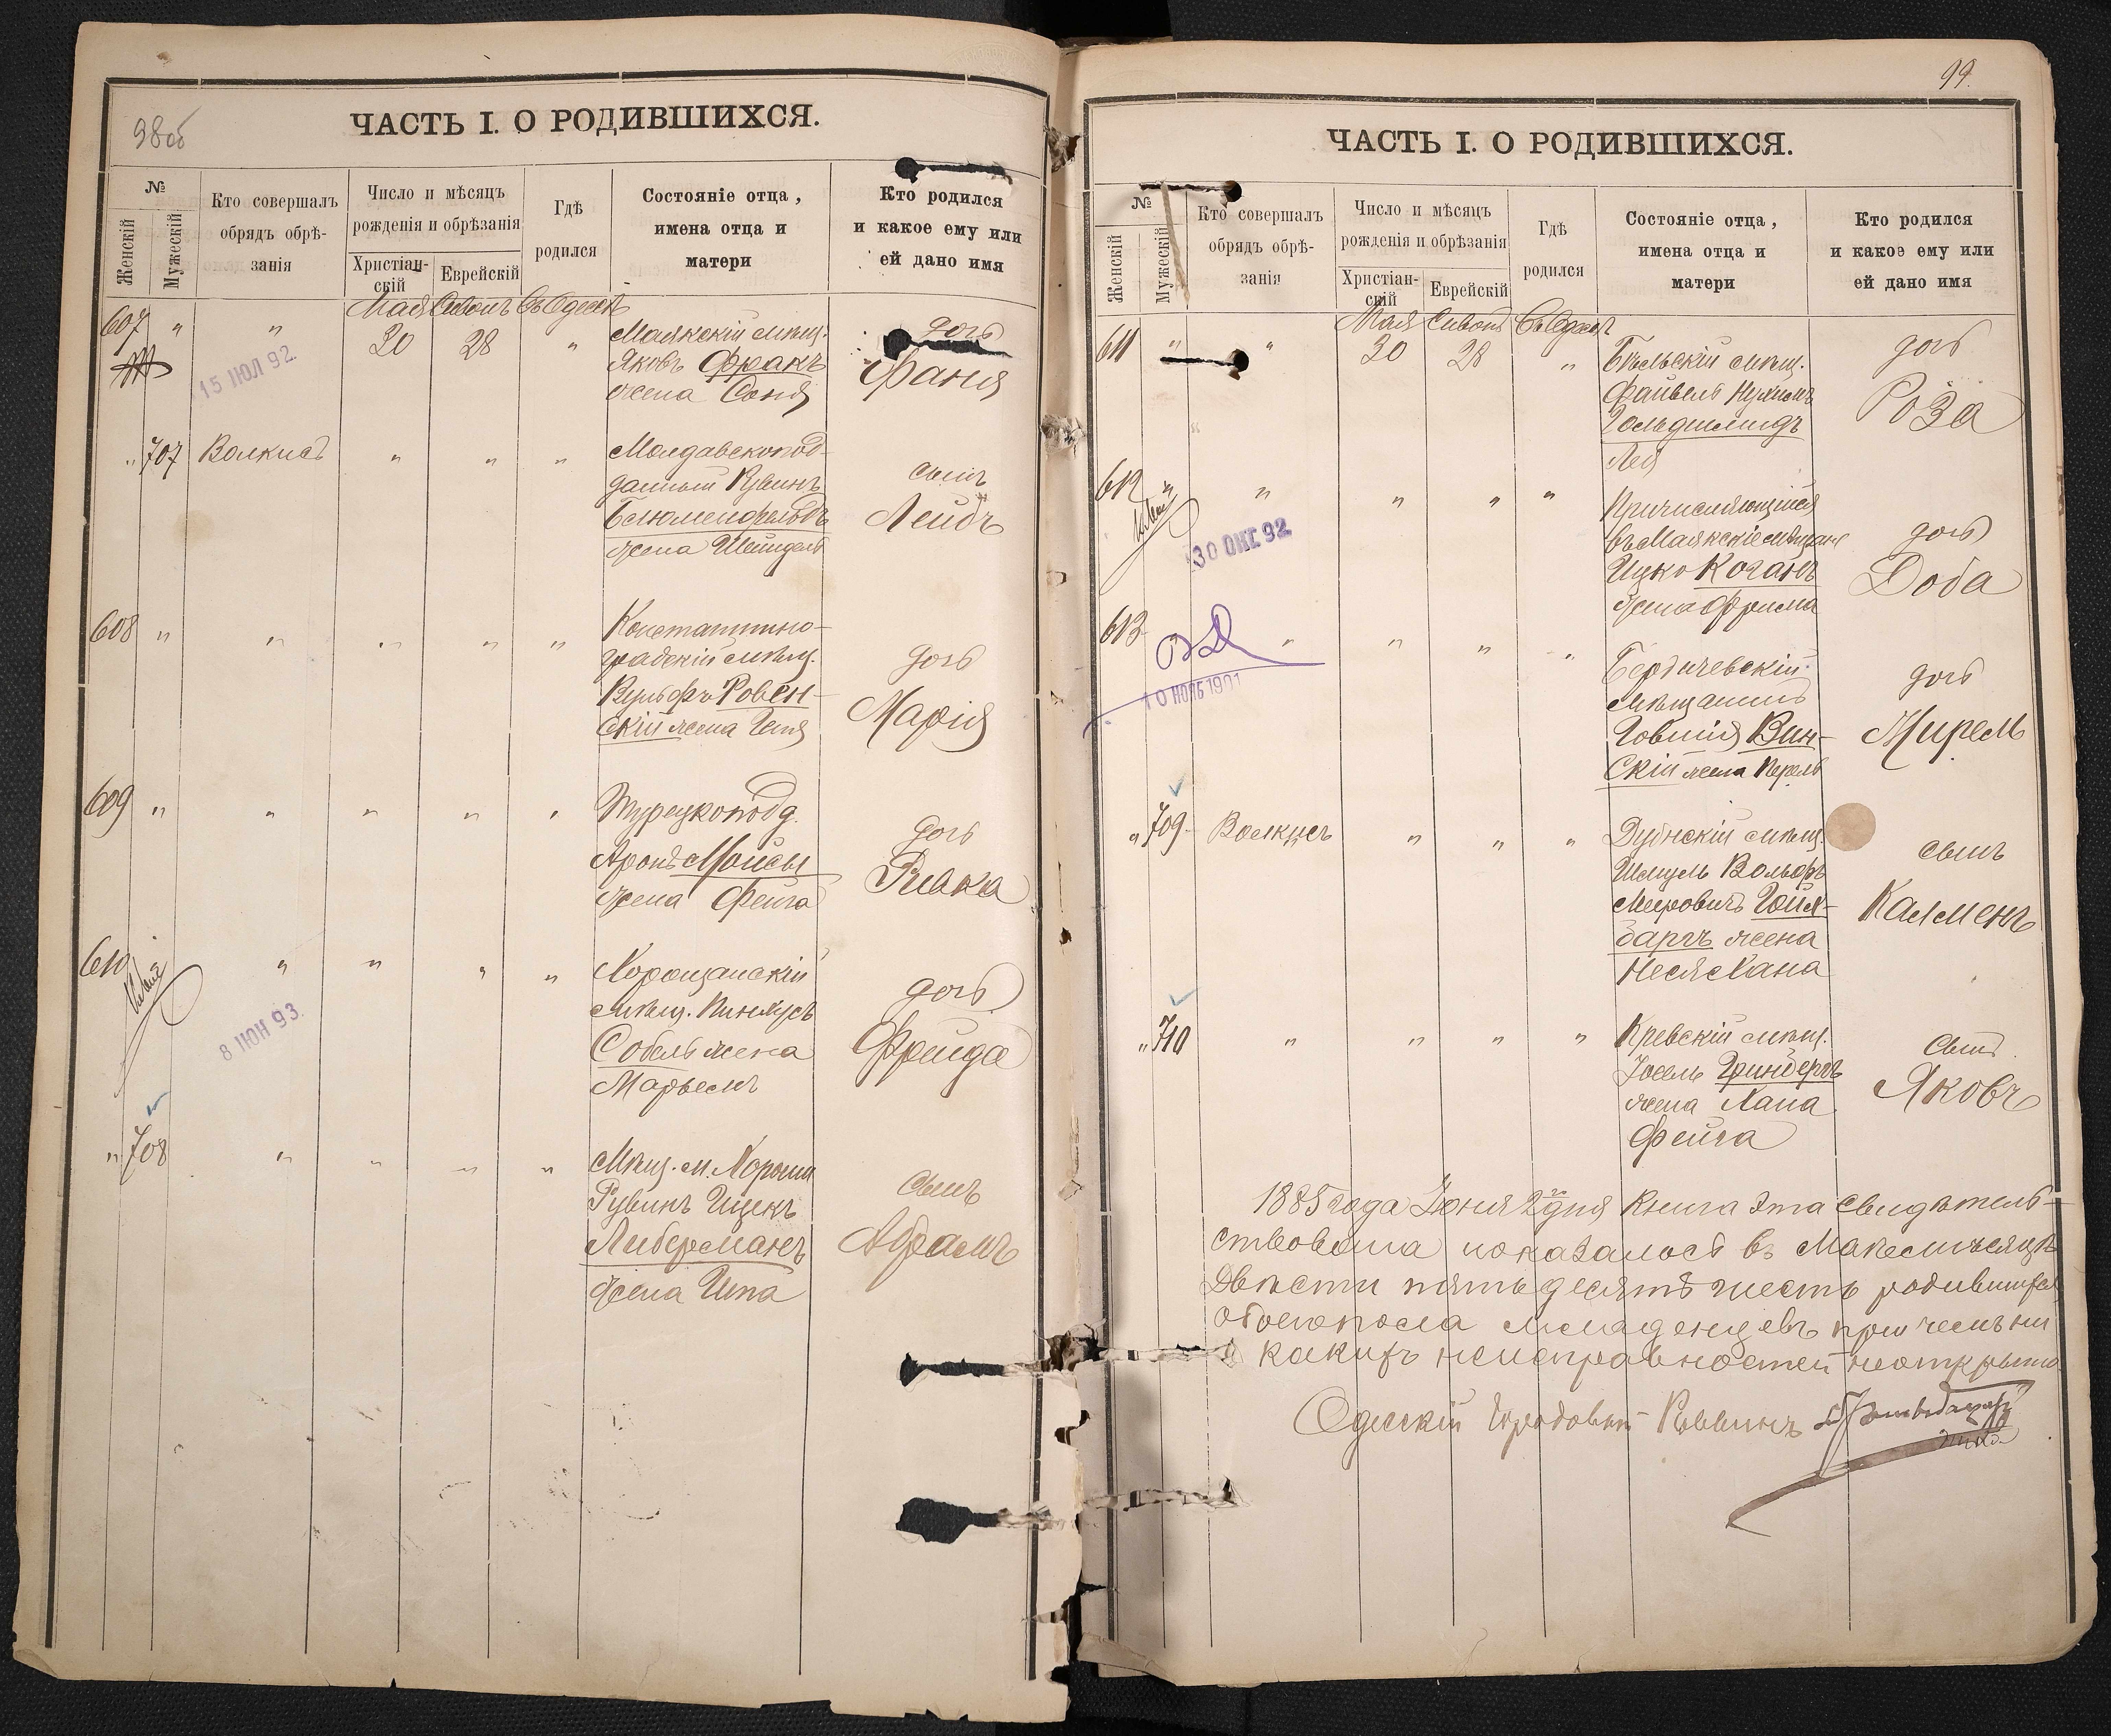 98об
ЧАСТЬ I. О РОДИВШИХСЯ.
№
Женскій
Мужескій
Кто совершалъ
обрядъ обрѣ-
занія
Число и мѣсяцъ
рожденія и обрѣзанія
Христіан-
скій
Еврейскій
Гдѣ
родился
Состояніе отца,
имена отца и
матери
Кто родился
и какое ему или
ей дано имя
Мая Сивонъ Въ Одессѣ
607 " " 30 28 "
15 ІЮЛ 92.
Маякскій мѣщ.
Яковъ Франкъ
жена Соня
дочь
Фаня
" 707 Волкисъ " " "
Молдавскопод-
данный Рувинъ
жена Шейндель
сынъ
Лейбъ
608 " " " " "
Константино-
градскій мѣщ.
Вульфъ Ровен-
скій жена
дочь
Марія
609 " " " " "
Турецкопод.
Аронъ Мойсы
жена Фейга
дочь
Ривка
610 " " " "
8 ІЮН 93.
Хорощанскій
мѣщ. Пинкусъ
Собель жена
Марьемъ
дочь
Фрейда
" 708 " " " "
Мѣщ. м. Хорощи
Рувинъ Ицекъ
Либерманъ
жена Ипа
сынъ
Абрамъ
99.
ЧАСТЬ I. О РОДИВШИХСЯ.
№
Женскій
Мужескій
Кто совершалъ
обрядъ обрѣ-
занія
Число и мѣсяцъ
рожденія и обрѣзанія
Христіан-
скій
Еврейскій
Гдѣ
родился
Состояніе отца,
имена отца и
матери
Кто родился
и какое ему или
ей дано имя
Мая Сивонъ Въ Одессѣ
611 " " 30 28 "
Бѣльскій мѣщ.
Файвель Нухимъ
Гольдшмидъ
Лея
дочь
Роза
612 " " " " "
30 ОКТ. 92.
Причисляющійся
въ Маякскіе мѣщане
Ицко Коганъ
жена Фрима
дочь
Доба
613 " " " "
10 НОЯБ 1901
Бердичевскій
мѣщанинъ
Говшія Вин-
скій жена Перель
дочь
Мирель
" 709 Волкисъ " " "
Дубнскій мѣщ.
Шмуль Вольфъ
Мееровичъ
баргъ жена
Неся Хана
сынъ
Калменъ
" 710 " " " "
Кревскій мѣщ.
Іосель Гринбергъ
жена Хана
Фейга
сынъ
Яковъ
1885 года Іюня 2го дня Книга эта свидѣтель-
ствована показалось въ Маѣ мѣсяцѣ
Двѣсти пятьдесятъ шесть родившихся
обоего пола младенцевъ при чемъ ни
какихъ неисправностей неоткрыто
Одесскій Городовый Раввинъ